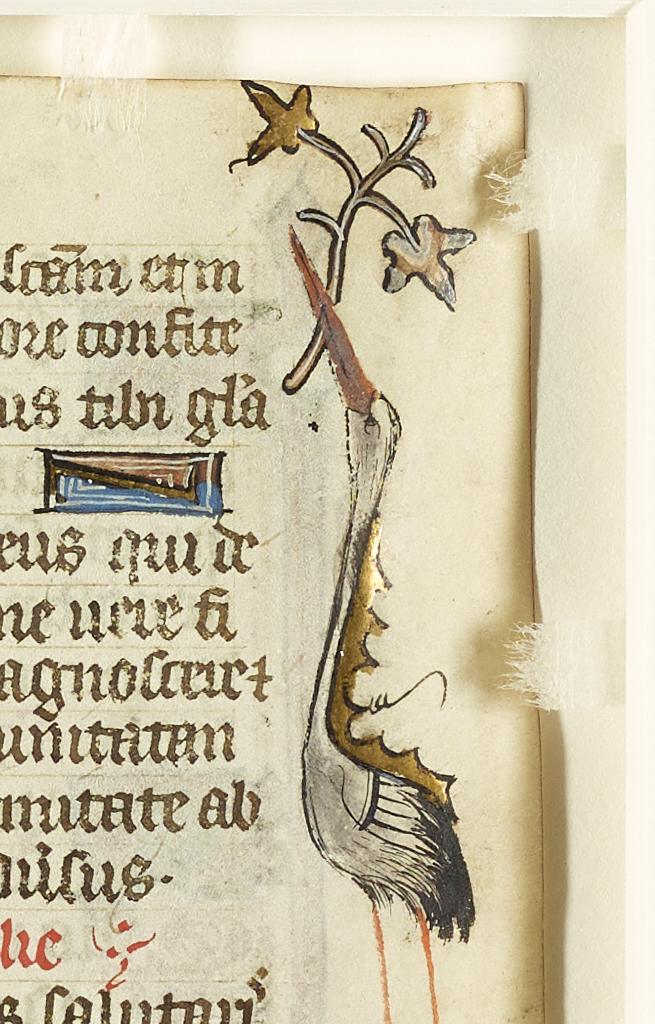 scāⁿ et in
ore confite
us tibi gl'a
eus qui de
ne uere fi
agnoscere⁊
unitatem
nitate ab
uersus.
lic
s salutari